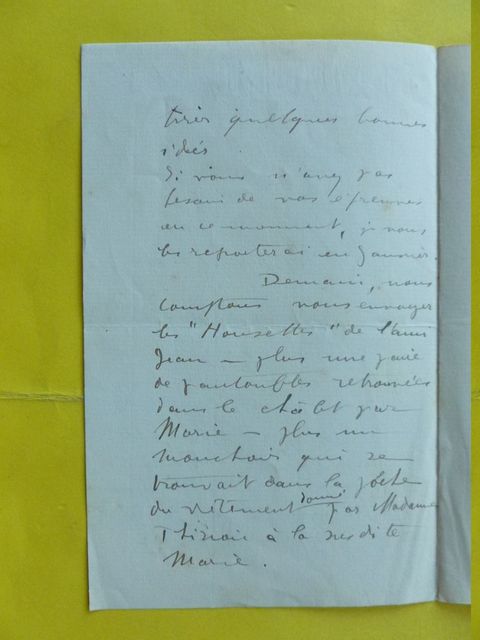 tirer quelques bonnes
idées.
Si vous n'avez pas
besoin de vos épreuves
en ce moment, je vous
les reporterai en Janvier.
Demain, nous
comptons vous envoyer
les "Housettes" de l'ami
Jean — plus une paire
de pantoufles retrouvées
dans le châlet par
Marie — plus un
mouchoir qui se
trouvait dans la poche
du vêtement donné par Madame
à la susdite
Marie.